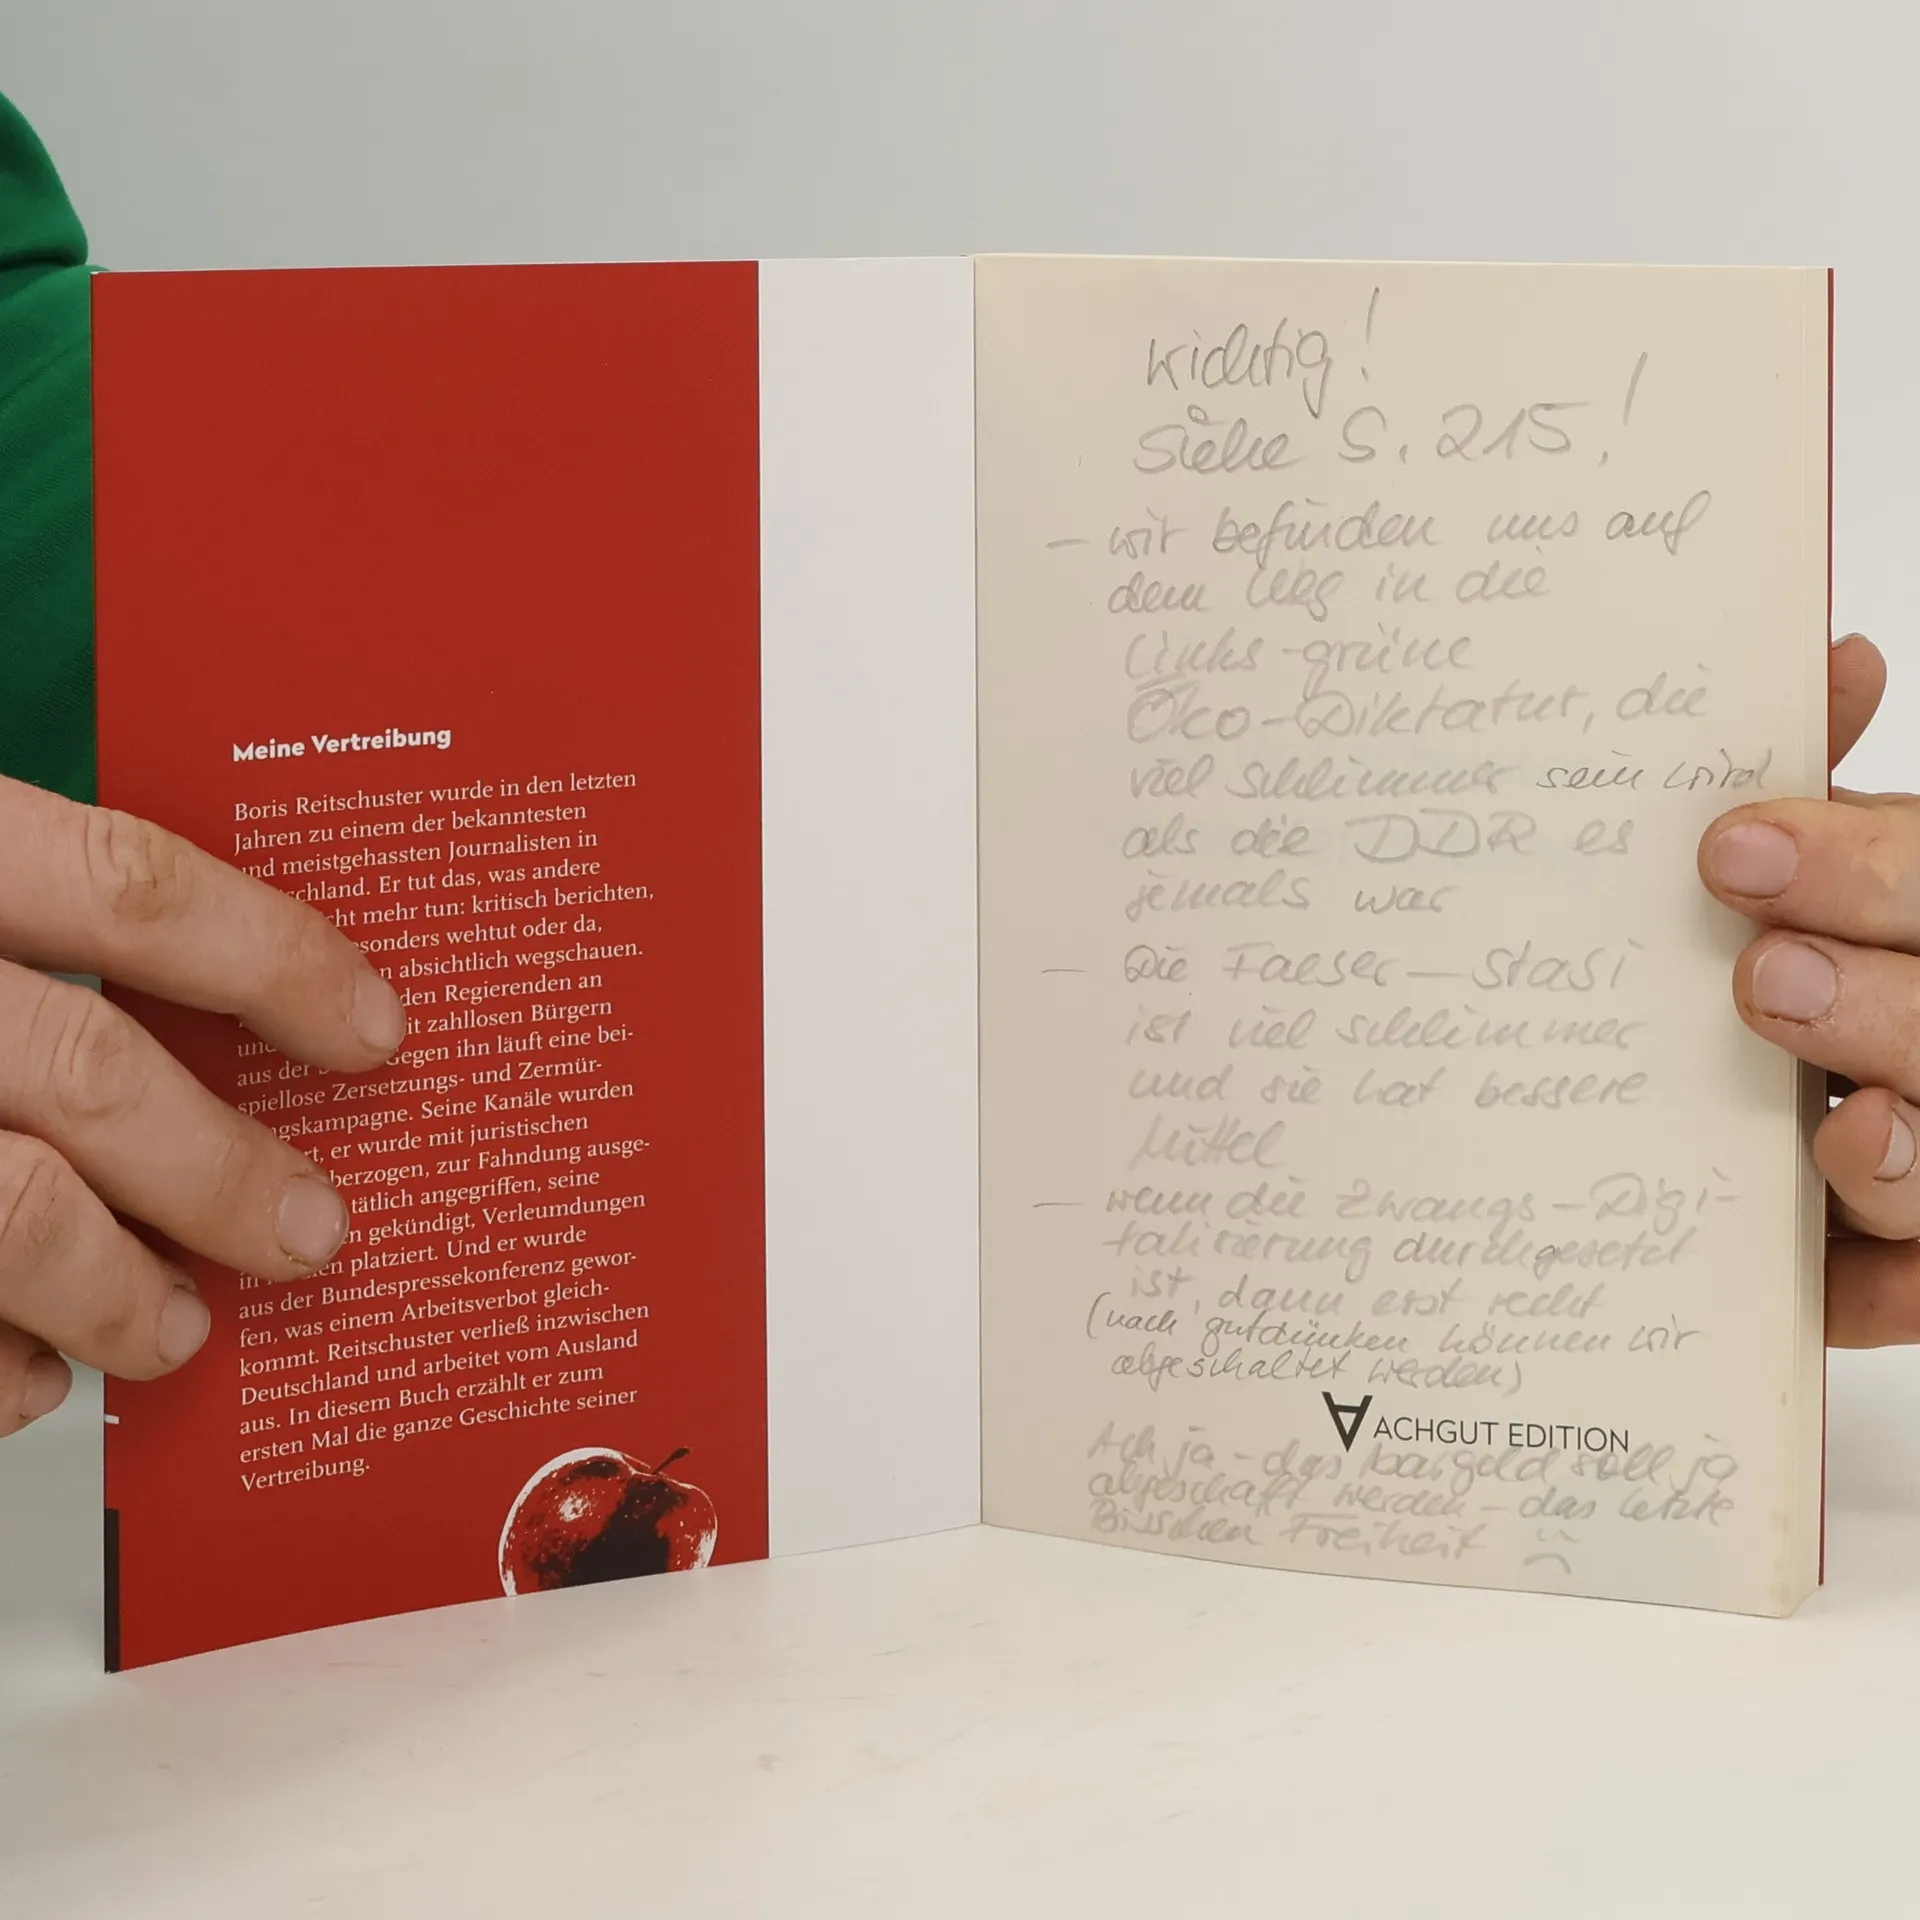 Meine Vertreibung
Boris Reitschuster wurde in den letzten
Jahren zu einem der bekanntesten
und meistgehassten Journalisten in
schland. Er tut das, was andere
cht mehr tun: kritisch berichten,
esonders wehtut oder da,
n absichtlich wegschauen.
den Regierenden an
it zahllosen Bürgern
und
aus der Gegen ihn läuft eine bei-
spiellose Zersetzungs- und Zermür-
ngskampagne. Seine Kanäle wurden
rt, er wurde mit juristischen
berzogen, zur Fahndung ausge-
tätlich angegriffen, seine
n gekündigt, Verleumdungen
in en platziert. Und er wurde
aus der Bundespressekonferenz gewor-
fen, was einem Arbeitsverbot gleich-
kommt. Reitschuster verließ inzwischen
Deutschland und arbeitet vom Ausland
aus. In diesem Buch erzählt er zum
ersten Mal die ganze Geschichte seiner
Vertreibung.
wichtig!
Siehe S. 215!
– wir befinden uns auf
dem Weg in die
Links-grüne
Öko-Diktatur, die
viel schlimmer sein wird
als die DDR es
jemals war
– Die Faeser-Stasi
ist viel schlimmer
und sie hat bessere
Mittel
– wenn die Zwangs-Digi-
talisierung durchgesetzt
ist, dann erst recht
(nach gutdünken können wir
abgeschaltet werden)
ACHGUT EDITION
Ach ja – das bargeld soll ja
abgeschafft werden – das letzte
Bisschen Freiheit